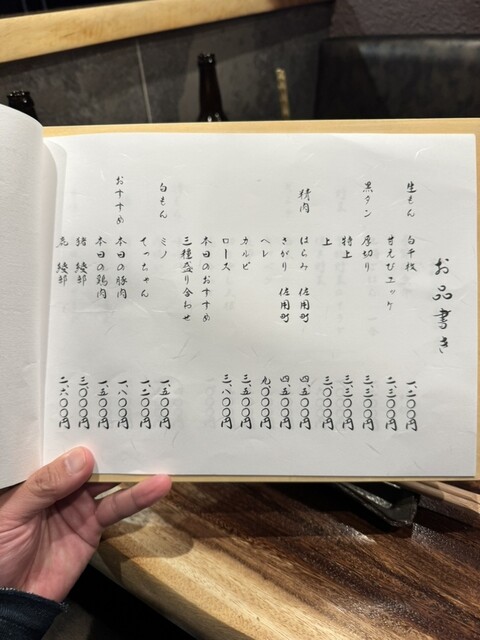 お品書き
生もん 白千枚 一、二〇〇円
甘えびユッケ 二、三〇〇円
黒タン 厚切り 三、三〇〇円
特上 三、三〇〇円
上 三、〇〇〇円
精肉 はらみ 佐用町 四、五〇〇円
さがり 佐用町 四、五〇〇円
ヘレ 九、〇〇〇円
カルビ 三、五〇〇円
ロース 三、八〇〇円
本日のおすすめ
三種盛り合わせ
白もん ミノ 一、五〇〇円
てっちゃん 一、二〇〇円
おすすめ 本日の豚肉 一、八〇〇円
本日の鶏肉 一、五〇〇円
猪 綾部 三、〇〇〇円
綾部 二、六〇〇円